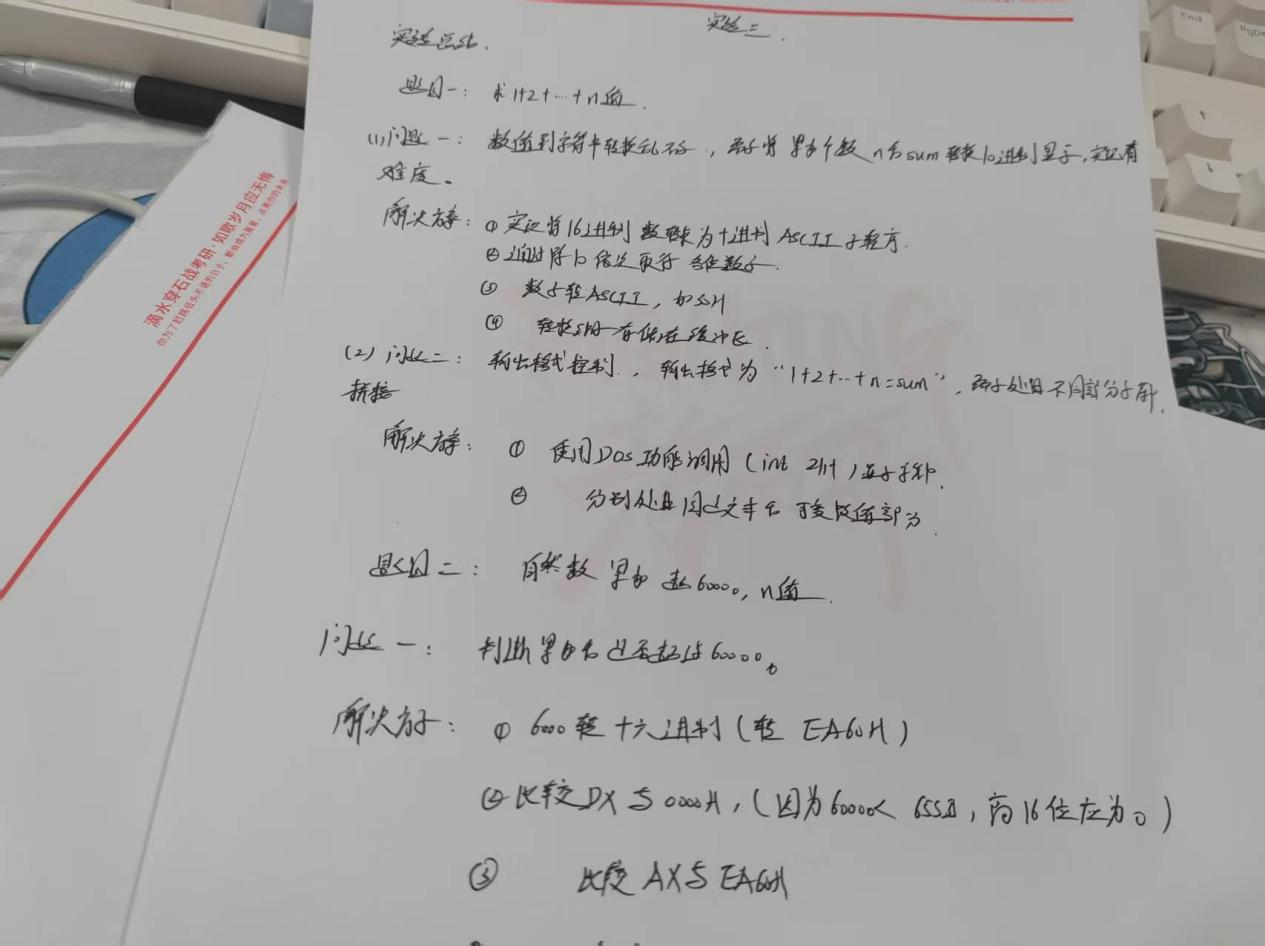 实验三
实验总结.
题目一: 求1+2+…+n值.
(1)问题一: 数值到字符串转换 , 需要将累加个数n和sum转换10进制显示,实现有
难度。
解决方案: ① 实现将16进制数转换为十进制ASCII
② 通过除10依次取得各位数字.
③ 数字转ASCII, 加30H
④ 转换 存储在缓冲区.
(2) 问题二: 输出格式控制., 输出格式为 "1+2+…+n=sum", 需要处理不同部分字符串.
拼接
解决方案: ① 使用DOS功能调用(int 21H)显示字符串.
② 分别处理固定文本和可变数值部分.
题目二: 自然数累加超60000, n值.
问题一: 判断累加和是否超过60000。
解决方案: ① 6000转十六进制(转 EA60H)
② 比较DX与0000H, (因为60000< , 高16位应为0)
③ 比较AX与EA60H
滴水穿石战考研·如歌岁月应无悔
你为了赶路低头不语的日子,都会成为星星,点亮你的未来
End
PgDn
↑
↓